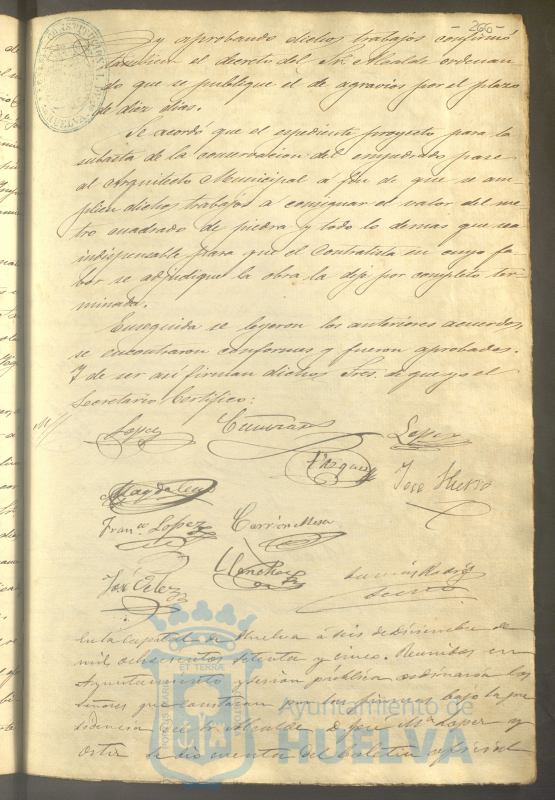 -266-
y aprobando dichos trabajos confirmó
tambien el decreto del Sr. Alcalde ordenan
do que se publique el de agravios por el plazo
de diez dias.
Se acordó que el espediente proyecto para la
subasta de la conservacion del empedrado pase
al Arquitecto Municipal a fin de que se am-
plien dichos trabajos a consignar el valor del me
tro cuadrado de piedra y todo lo demas que sea
indispensable para que el Contratista en cuyo fa
bor se adjudique la obra la deje por completo ter-
minada.
Enseguida se leyeron los anteriores acuerdos,
se encontraron conformes y fueron aprobados.
Y de ser asi firman dichos Sres. de que yo el
Secretario Certifico:
Lopez
Lopez
Vazquez
Jose Hierro
Magdalena
Franco. Lopez
Carrion Mesa
José
En la Capital de Huelva á seis de Diciembre de
mil ochocientos setenta y cinco. Reunidos en
Ayuntamiento y sesion pública ordinaria los
Señores que constan bajo la pre
sidencia del Sr. Alcalde D. José Ma. Lopez y
se dio cuenta del Boletin oficial
CONSTITUCIONAL DE HUELVA
ET TERRA
PORTUS MARIS
Ayuntamiento de
HUELVA